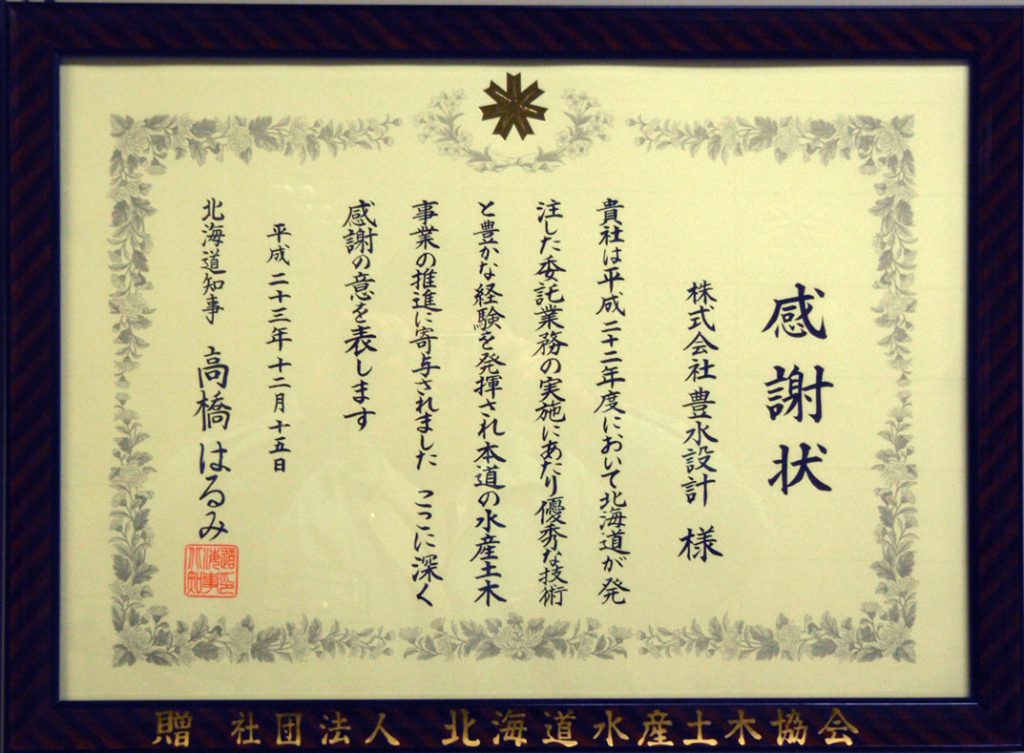 感謝状
株式会社豊水設計 様
貴社は平成二十二年度において北海道が発
注した委託業務の実施にあたり優秀な技術
と豊かな経験を発揮され本道の水産土木
事業の推進に寄与されました ここに深く
感謝の意を表します
平成二十三年十二月十五日
北海道知事 高橋はるみ
贈 社団法人 北海道水産土木協会